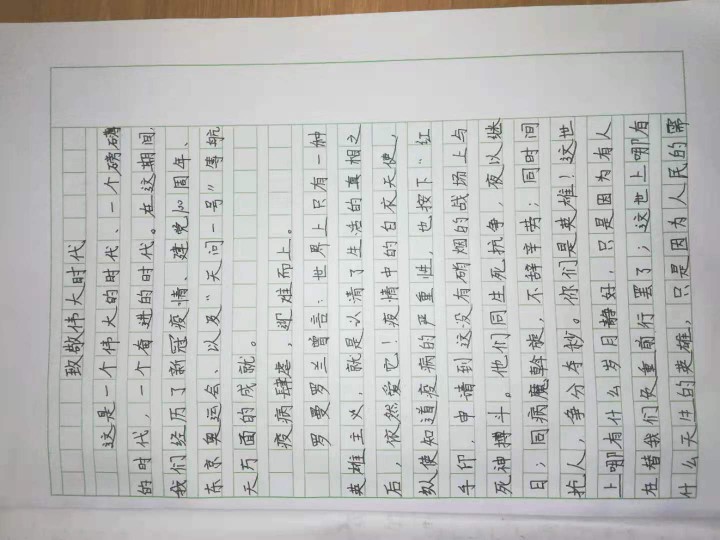 致敬伟大时代
这是一个伟大的时代、一个磅礴
的时代,一个奋进的时代。在这期间,
我们经历了新冠疫情、建党100周年、
东京奥运会、以及“天问一号”等航
天方面的成就。
疫病肆虐,迎难而上。
罗曼罗兰曾言:世界上只有一种
英雄主义,就是认清了生活的真相之
后,依然爱它!疫情中的白衣天使,
纵使知道疫病的严重性,也按下“红
手印,申请到这没有硝烟的战场上与
死神搏斗。他们同生死抗争,夜以继
日;同病魔斡旋,不辞辛劳;同时间
抢人,争分夺秒。你们是英雄!这世
上哪有什么岁月静好,只是因为有人
在替我们负重前行罢了;这世上哪有
什么天生的英雄,只是因为人民的需